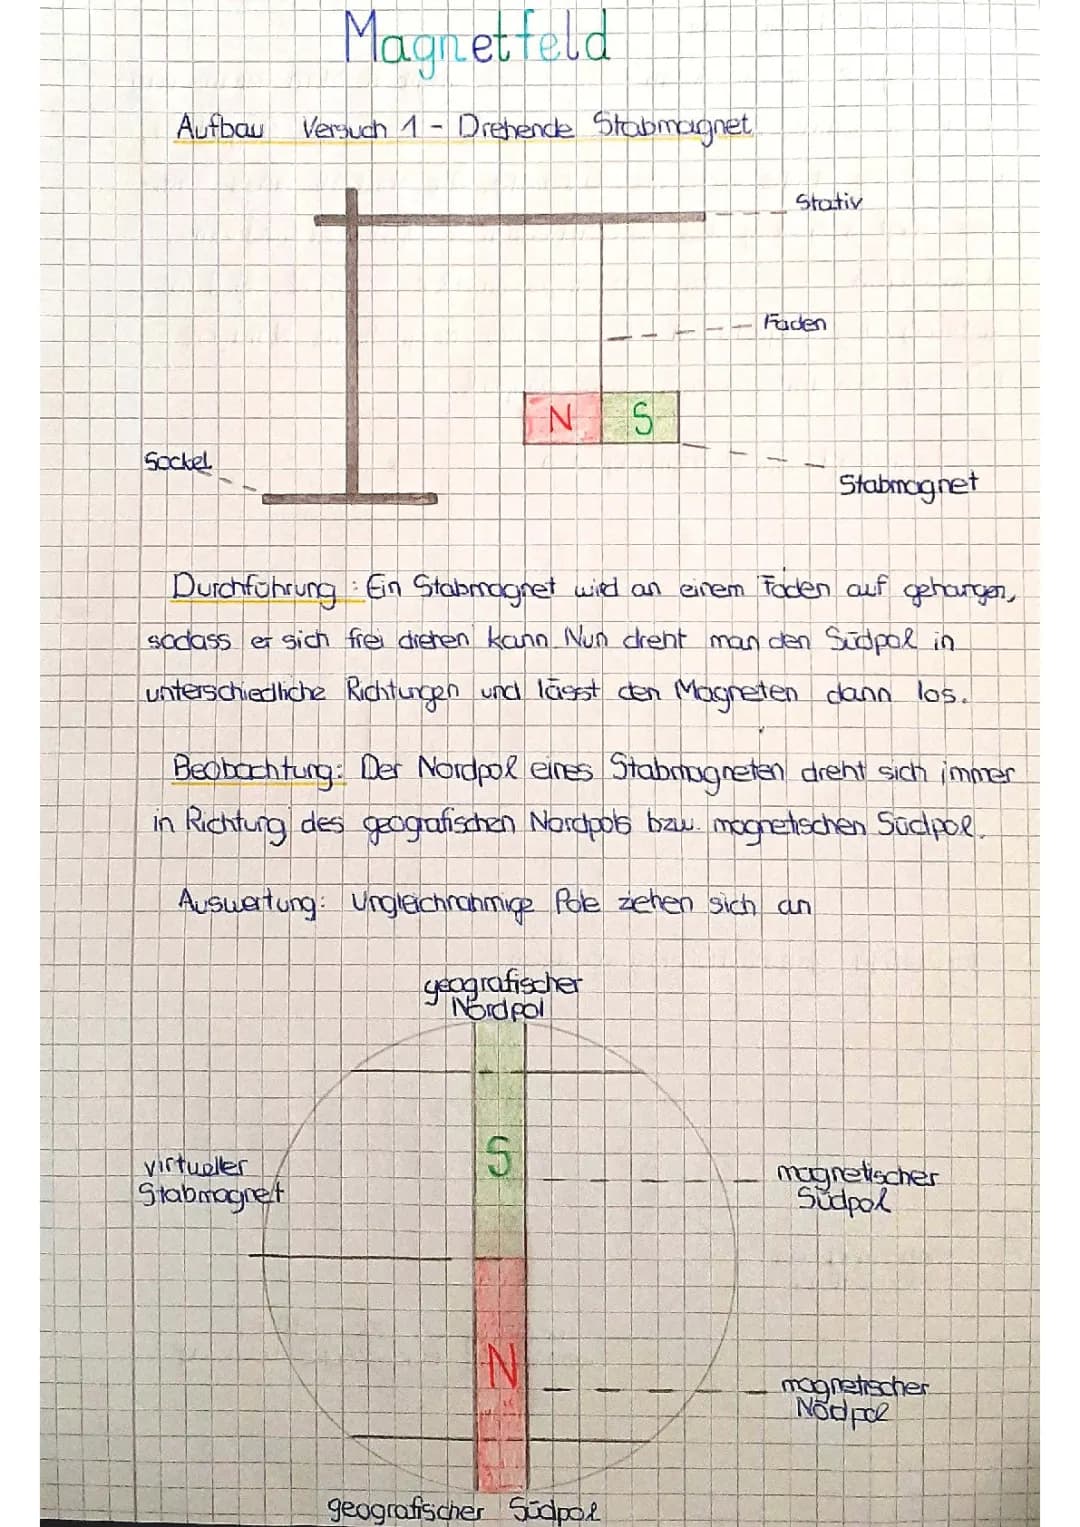 Magnetfeld
Aufbau Versuch 1 - Drehende Stabmagnet
Stativ
Faden
N S
Sockel
Stabmagnet
Durchführung: Ein Stabmagnet wird an einem Faden auf gehangen,
sodass er sich frei drehen kann. Nun dreht man den Südpol in
unterschiedliche Richtungen und lässt den Magneten dann los.
Beobachtung: Der Nordpol eines Stabmagneten dreht sich immer
in Richtung des geografischen Nordpols bzw. magnetischen Südpol.
Auswertung: Ungleichnahmige Pole ziehen sich an
geografischer
Nordpol
S
virtueller
Stabmagnet
magnetischer
Südpol
N
magnetischer
Nödpol
geografischer Südpol